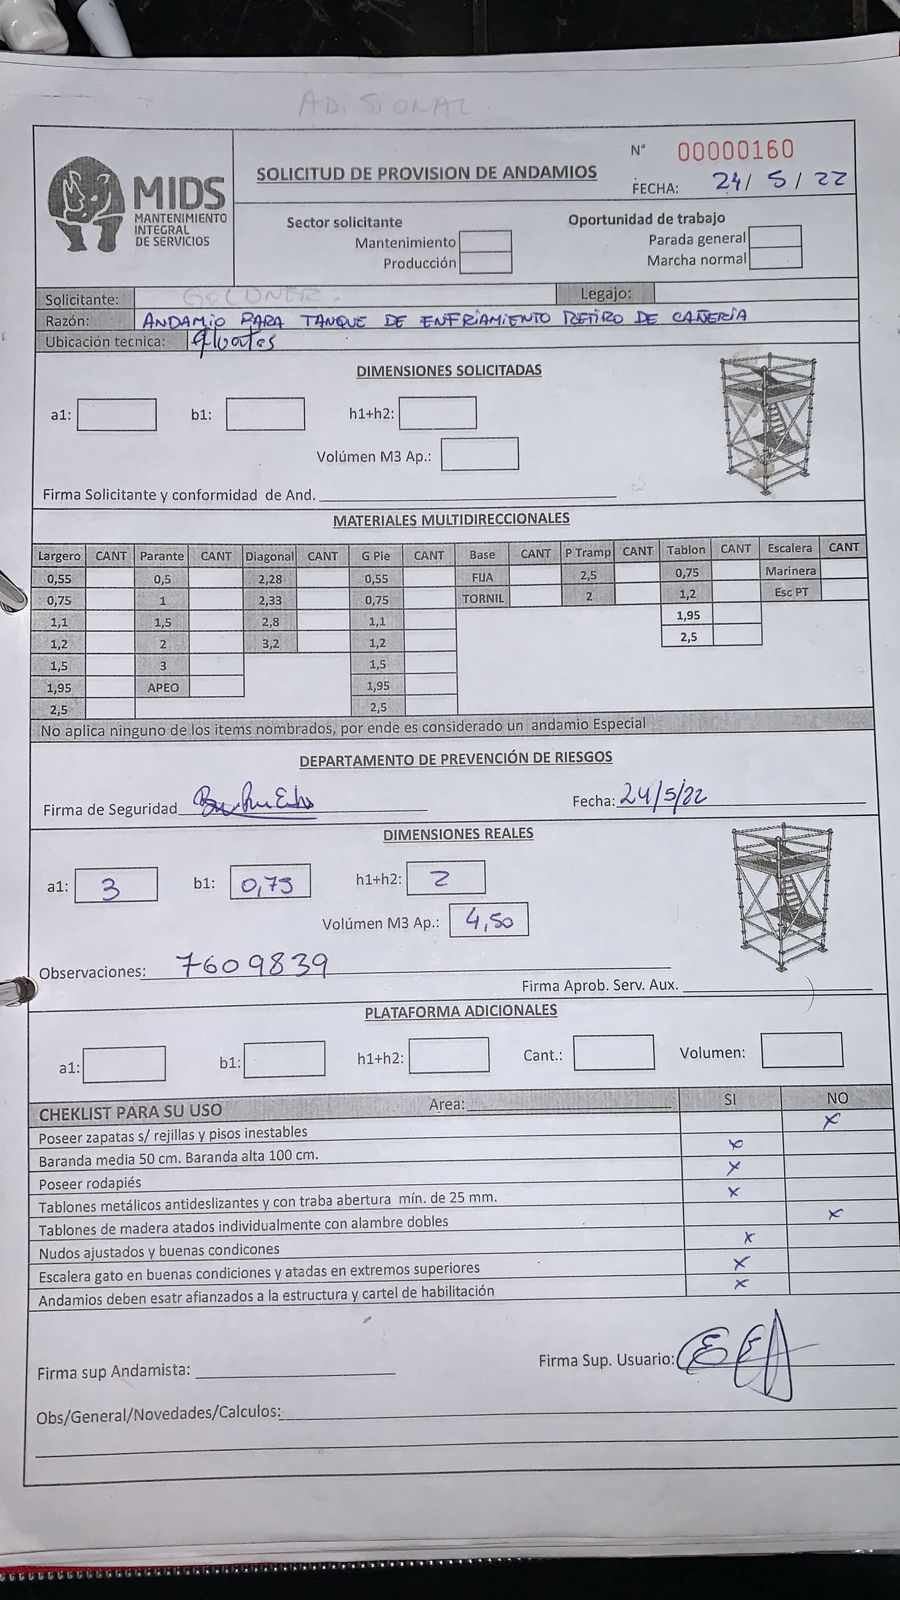 ADISIONAL.
MIDS
MANTENIMIENTO
INTEGRAL
DE SERVICIOS
SOLICITUD DE PROVISION DE ANDAMIOS
N° 00000160
FECHA: 24/5/22
Sector solicitante
Mantenimiento
Producción
Oportunidad de trabajo
Parada general
Marcha normal
Solicitante: GOLDNER. Legajo:
Razón: ANDAMIO PARA TANQUE DE ENFRIAMIENTO RETIRO DE CAÑERIA
Ubicación tecnica:
DIMENSIONES SOLICITADAS
a1: b1: h1+h2:
Volúmen M3 Ap.:
Firma Solicitante y conformidad de And.
MATERIALES MULTIDIRECCIONALES
Largero CANT Parante CANT Diagonal CANT G Pie CANT Base CANT P Tramp CANT Tablon CANT Escalera CANT
0,55 0,5 2,28 0,55 FIJA 2,5 0,75 Marinera
0,75 1 2,33 0,75 TORNIL 2 1,2 Esc PT
1,1 1,5 2,8 1,1 1,95
1,2 2 3,2 1,2 2,5
1,5 3 1,5
1,95 APEO 1,95
2,5 2,5
No aplica ninguno de los items nombrados, por ende es considerado un andamio Especial
DEPARTAMENTO DE PREVENCIÓN DE RIESGOS
Firma de Seguridad Fecha: 24/5/22
DIMENSIONES REALES
a1: 3 b1: 0,75 h1+h2: 2
Volúmen M3 Ap.: 4,50
Observaciones: 7609839
Firma Aprob. Serv. Aux.
PLATAFORMA ADICIONALES
a1: b1: h1+h2: Cant.: Volumen:
CHEKLIST PARA SU USO Area: SI NO
Poseer zapatas s/ rejillas y pisos inestables x
Baranda media 50 cm. Baranda alta 100 cm. x
Poseer rodapiés x
Tablones metálicos antideslizantes y con traba abertura mín. de 25 mm. x
Tablones de madera atados individualmente con alambre dobles x
Nudos ajustados y buenas condicones x
Escalera gato en buenas condiciones y atadas en extremos superiores x
Andamios deben esatr afianzados a la estructura y cartel de habilitación x
Firma sup Andamista: Firma Sup. Usuario:
Obs/General/Novedades/Calculos: